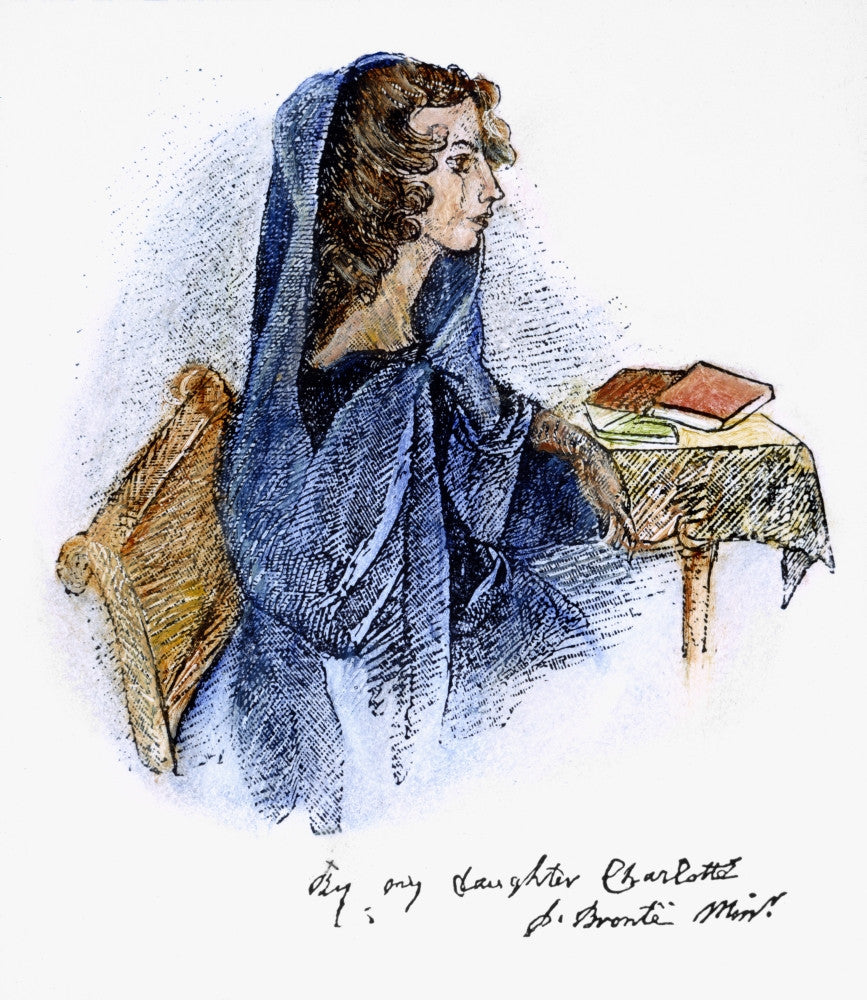 By my daughter Charlotte
P. Brontë Minr.